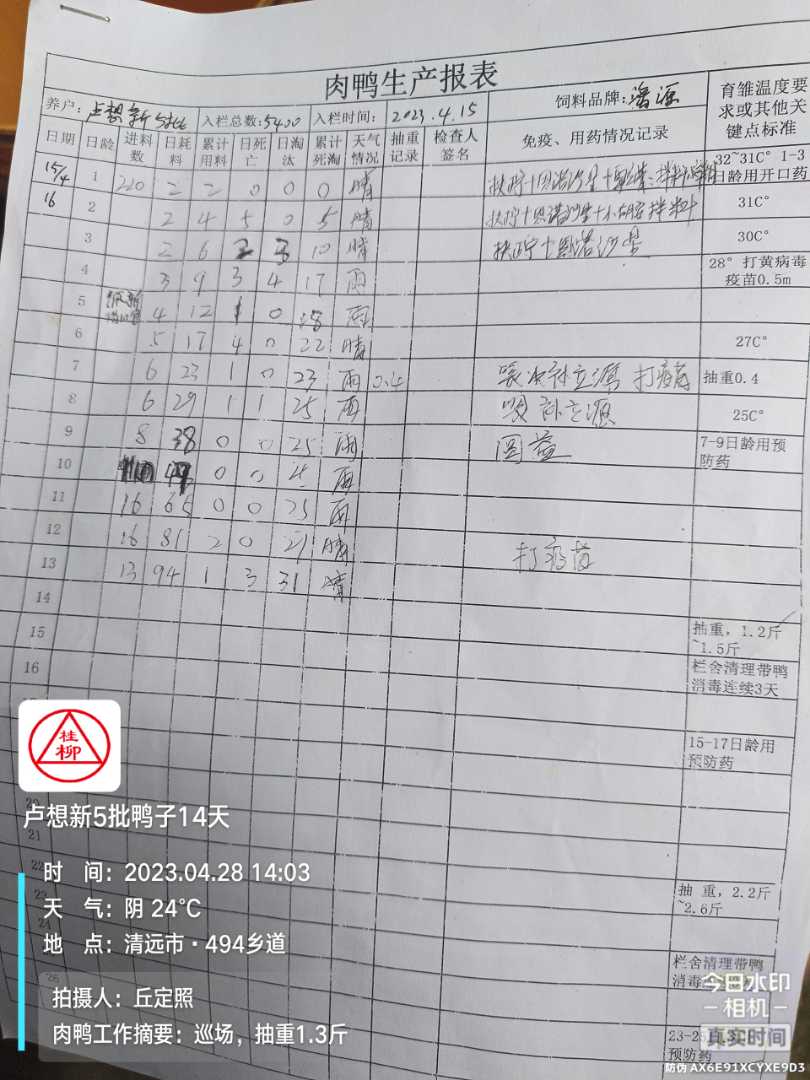 肉鸭生产报表
养户: 卢想新 5批 入栏总数: 5400 入栏时间: 2023.4.15 饲料品牌: 育雏温度要求或其他关键点标准
日期 日龄 进料数 日耗料 累计用料 日死亡 日淘汰 累计死淘 天气情况 抽重记录 检查人签名 免疫、用药情况记录
15/4 1 220 2 2 0 0 0 晴 32~31C° 1-3日龄用开口药
16 2 2 4 5 0 5 晴 31C°
3 2 6 2 3 10 晴 30C°
4 3 9 3 4 17 雨 28° 打黄病毒疫苗0.5m
5 4 12 1 0 18 雨
6 5 17 4 0 22 晴 27C°
7 6 23 1 0 23 雨 0.4 打疫苗 抽重0.4
8 6 29 1 1 25 雨 25C°
9 8 38 0 0 25 雨 7-9日龄用预防药
10 0 0 雨
11 16 65 0 0 25 雨
12 16 81 2 0 27 晴 打疫苗
13 13 94 1 3 31 晴
14
15 抽重，1.2斤~1.5斤
16 栏舍清理带鸭消毒连续3天
15-17日龄用预防药
21
22 抽 重，2.2斤~2.6斤
栏舍清理带鸭
预防药
桂柳
卢想新5批鸭子14天
时 间：2023.04.28 14:03
天 气：阴 24℃
地 点：清远市·494乡道
拍摄人：丘定照
肉鸭工作摘要：巡场，抽重1.3斤
今日水印
相机
真实时间
防伪 AX6E91XCYXE9D3